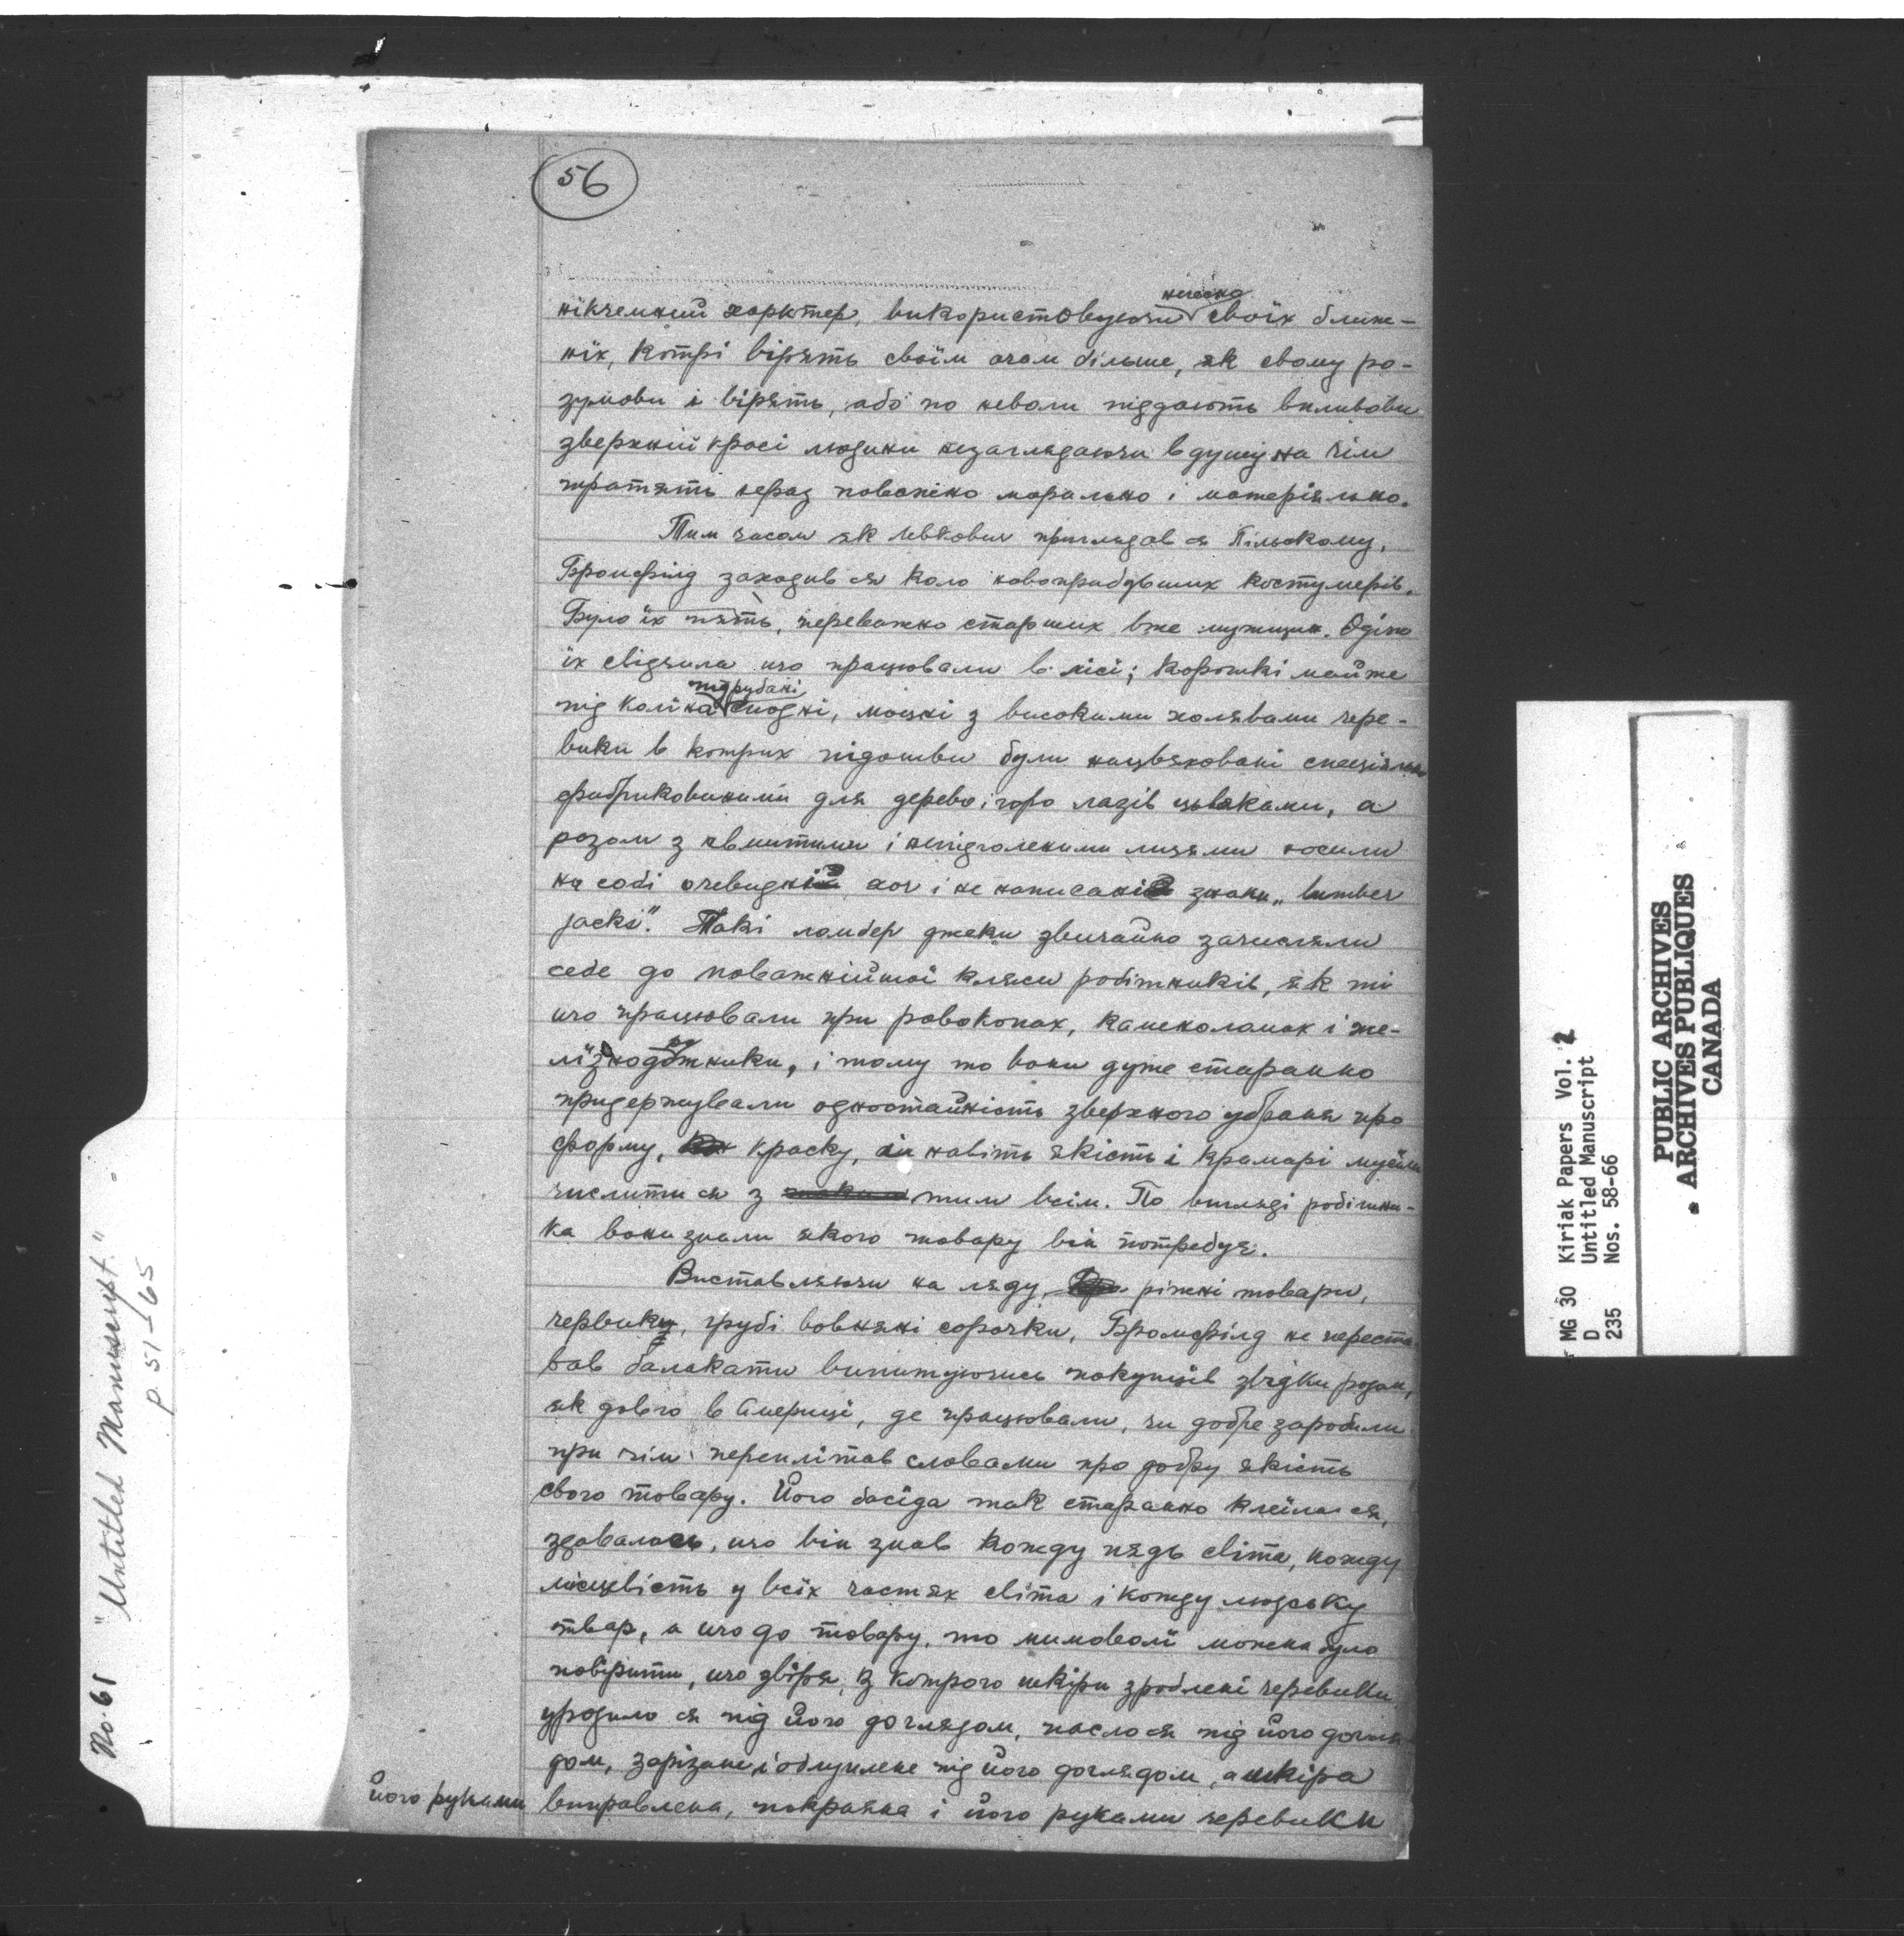 56
нікчемний харктер, використовуючи нечесно своїх ближ-
ніх, котрі вірять своїм очам більше, як свому ро-
зумови і вірять, або по неволи піддають вливови
зверхній красі людини незаглядаючи в душу на чім
тратять нераз поважно морально і матеріяльно.
Тим часом як Левкович приглядав ся Пільскому,
Бромфілд заходив ся коло новоприбувших костумерів.
Було їх пять, переважно старших вже мужщин. Одіж
їх свідчила що працювали в лісі; короткі майже
під коліна підрубані сподні, моцні з високими холявами чере-
вики в котрих підошви були нацвяховані специяльно
фабрикованими для дерево і горо лазів цьвяками, а
разом з квитими і непідголеними лицями носили
на собі очевидні хоч і не написані знаки „lumber
jacks". Такі ламбер джеки звичайно зачисляли
себе до поважнійшої кляси робітників, як ті
що працювали при ровокопах, каменоломах і же-
лізнодорожники, і тому то вони дуже старанно
придержували одностайність зверхного убраня про
форму, краску, ба навіть якість і крамарі мусіли
числити ся з тим всім. По вигляді робітни-
ка вони знали якого товару він потребує.
Виставляючи на ляду, ріжні товари,
червики, грубі вовняні сорочки, Бромфілд не переста-
вав балакати випитуючись покупців звідки родом,
як довго в Америці, де працювали, чи добре заробили
при чім переплітав словами про добру якість
свого товару. Його басіда так старанно клеїла ся,
здавалось, що він знав кожду пядь світа, кожду
місцевість у всіх частях світа і кожду людську
твар, а що до товару, то мимоволі можна було
повірити, що звіря, з котрого шкіри зроблені черевики
уродило ся під його доглядом, паслося під його догля-
дом, зарізане і облуплене під його доглядом, а шкіра
його руками
виправлена, покраяна і його руками черевики
No. 61 "Untitled Manuscript."
p. 51-65
MG 30 Kiriak Papers Vol. 2
D Untitled Manuscript
235 Nos. 58-66
PUBLIC ARCHIVES
ARCHIVES PUBLIQUES
CANADA